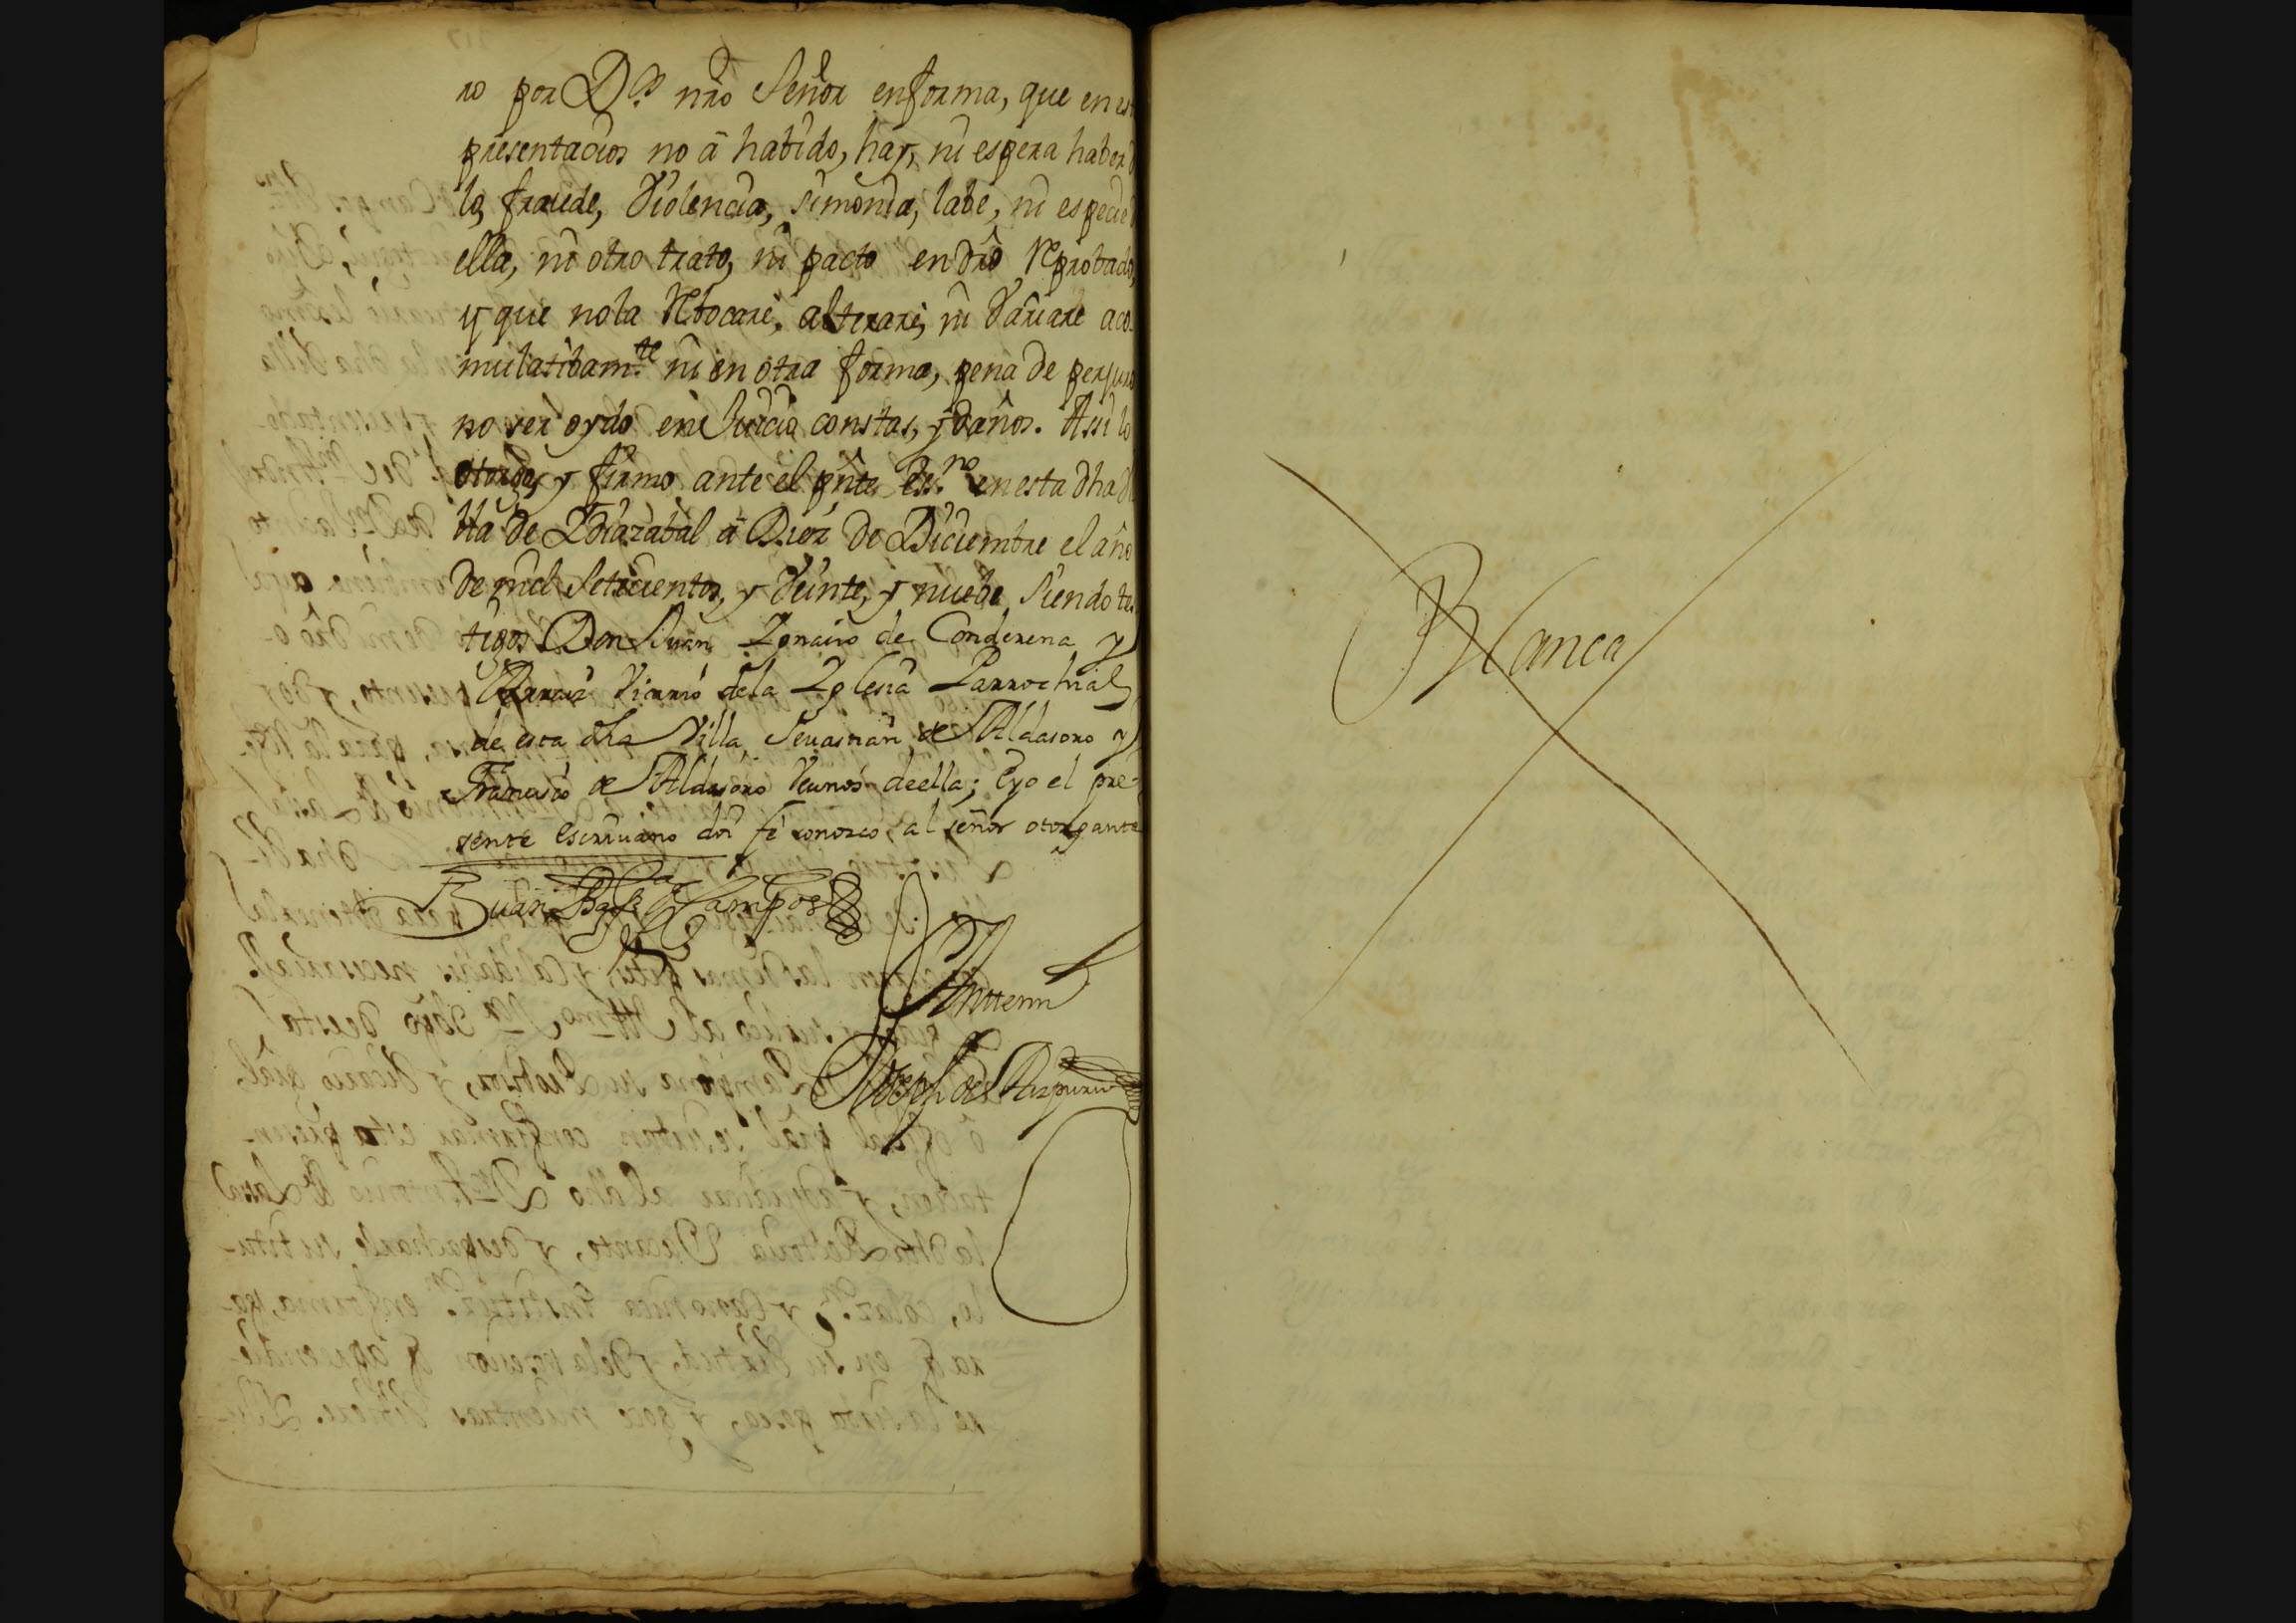 ro por D.s nr̃o Señor en forma, que en est
presentacion no à habido, hay, ni espera haber d
lo, fraude, Violencia, simonia, labe, ni especie d
ella, ni otro trato, ni pacto en dr̃o reprobado,
y que no la rebocare, alterare, ni Variare aco-
mulatibam.te ni en otra forma, pena de perjuro
no ser oydo en Juicio constas, y daños. Assi lo
otorgo, y firmo ante el pñte Ess.no en esta dha
lla de Ydiazabal à Diez de Diciembre el año
de mil Setecientos, y Veinte, y nuebe, Siendo tes
tigos Don Juan Ignacio de Conderena y
Vicario de la Yglesia Parrochial
de esta dha Villa, Seuastian de Aldasoro y
Francisco de Aldasoro Vecinos de ella; E yo el pre-
sente escriuano doi fé conozco, al señor otorgante
Juan Bap.ta Campos
Antte mi
Joseph de Aizpuru
Blanca